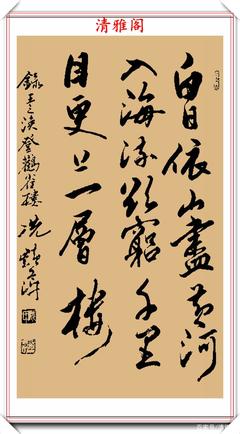 清雅阁
白日依山盡黄河
入海流欲窮千里
目更上一層樓
録王之渙登鸛雀樓